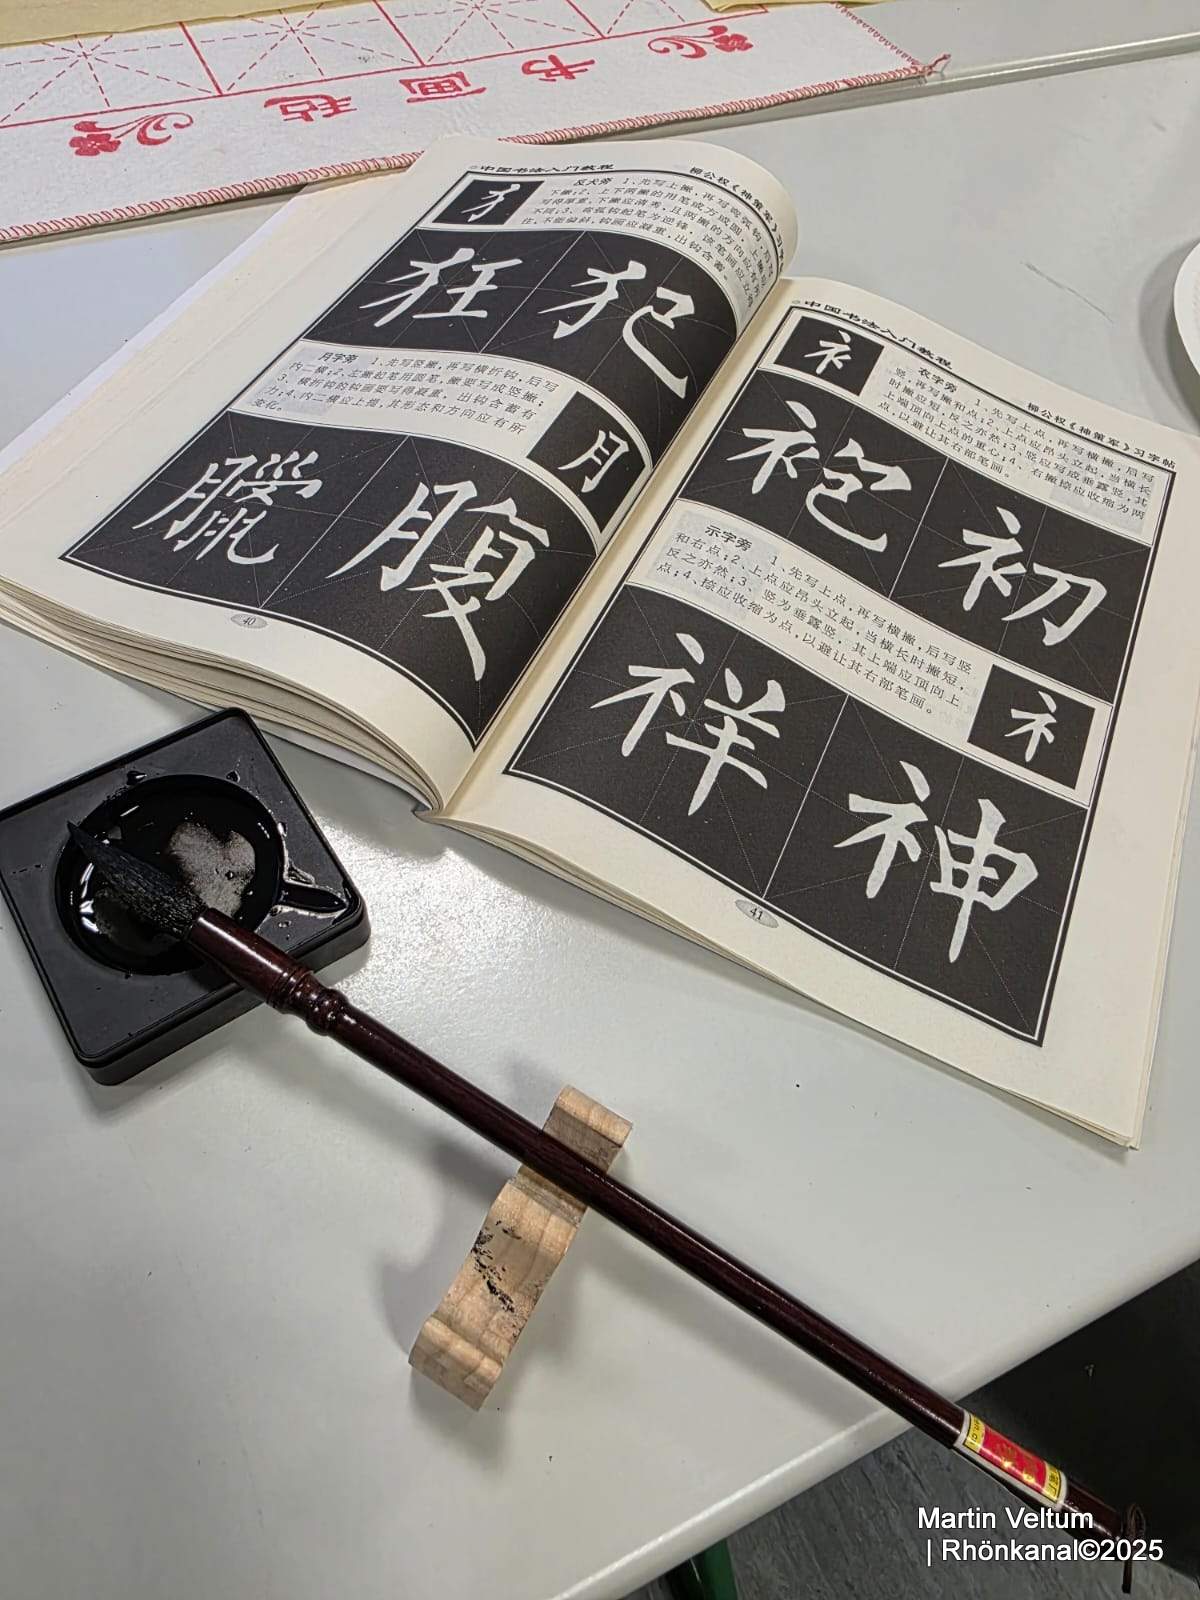 书画毡
中国书法入门教程
柳公权《神策军》习
犭
反犬旁 1、先写上撇,再写弯弧钩,后写
下撇;2、上下两撇的用笔或方或圆,上撇应
写得厚重,下撇应清秀,且两撇的方向应有所
不同;3、弯弧钩起笔为逆锋,该笔画应立得
住,不能偏斜,钩画应凝重,出钩含蓄。
狂犯
月字旁 1、先写竖撇,再写横折钩,后写
内二横;2、左撇起笔用圆笔,撇要写成竖撇;
3、横折钩的钩画要写得凝重,出钩含蓄有
力;4、内二横应上提,其形态和方向应有所
变化。
月
臘腹
40
中国书法入门教程
柳公权《神策军》习字帖
衤
衣字旁 1、先写上点,再写横撇,后写
竖,再写撇和点;2、上点应昂头立起,当横长
时撇应短,反之亦然;3、竖应写成垂露竖,其
上端顶向上点的重心;4、右撇捺应收缩为两
点,以避让其右部笔画。
袍初
示字旁 1、先写上点,再写横撇,后写竖
和右点;2、上点应昂头立起,当横长时撇短,
反之亦然;3、竖为垂露竖,其上端应顶向上
点;4、捺应收缩为点,以避让其右部笔画。
礻
祥神
41
Martin Veltum
| Rhönkanal©2025